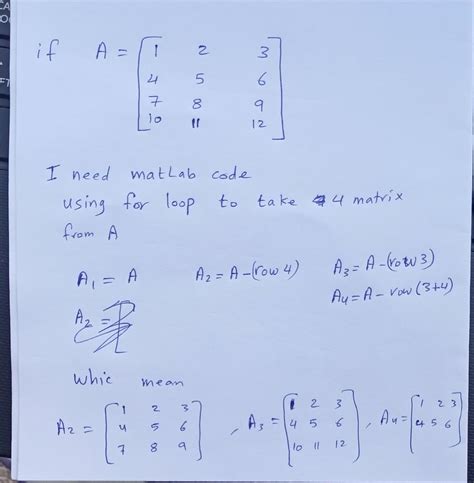 if A = [ 1 2 3
4 5 6
7 8 9
10 11 12 ]
I need matLab code
using for loop to take 4 matrix
from A
A1 = A A2 = A-(row 4) A3 = A-(row 3)
A4 = A- row (3+4)
A2 =
Whic mean
A2 = [ 1 2 3
4 5 6
7 8 9 ]
, A3 = [ 1 2 3
4 5 6
10 11 12 ]
, A4 = [ 1 2 3
4 5 6 ]